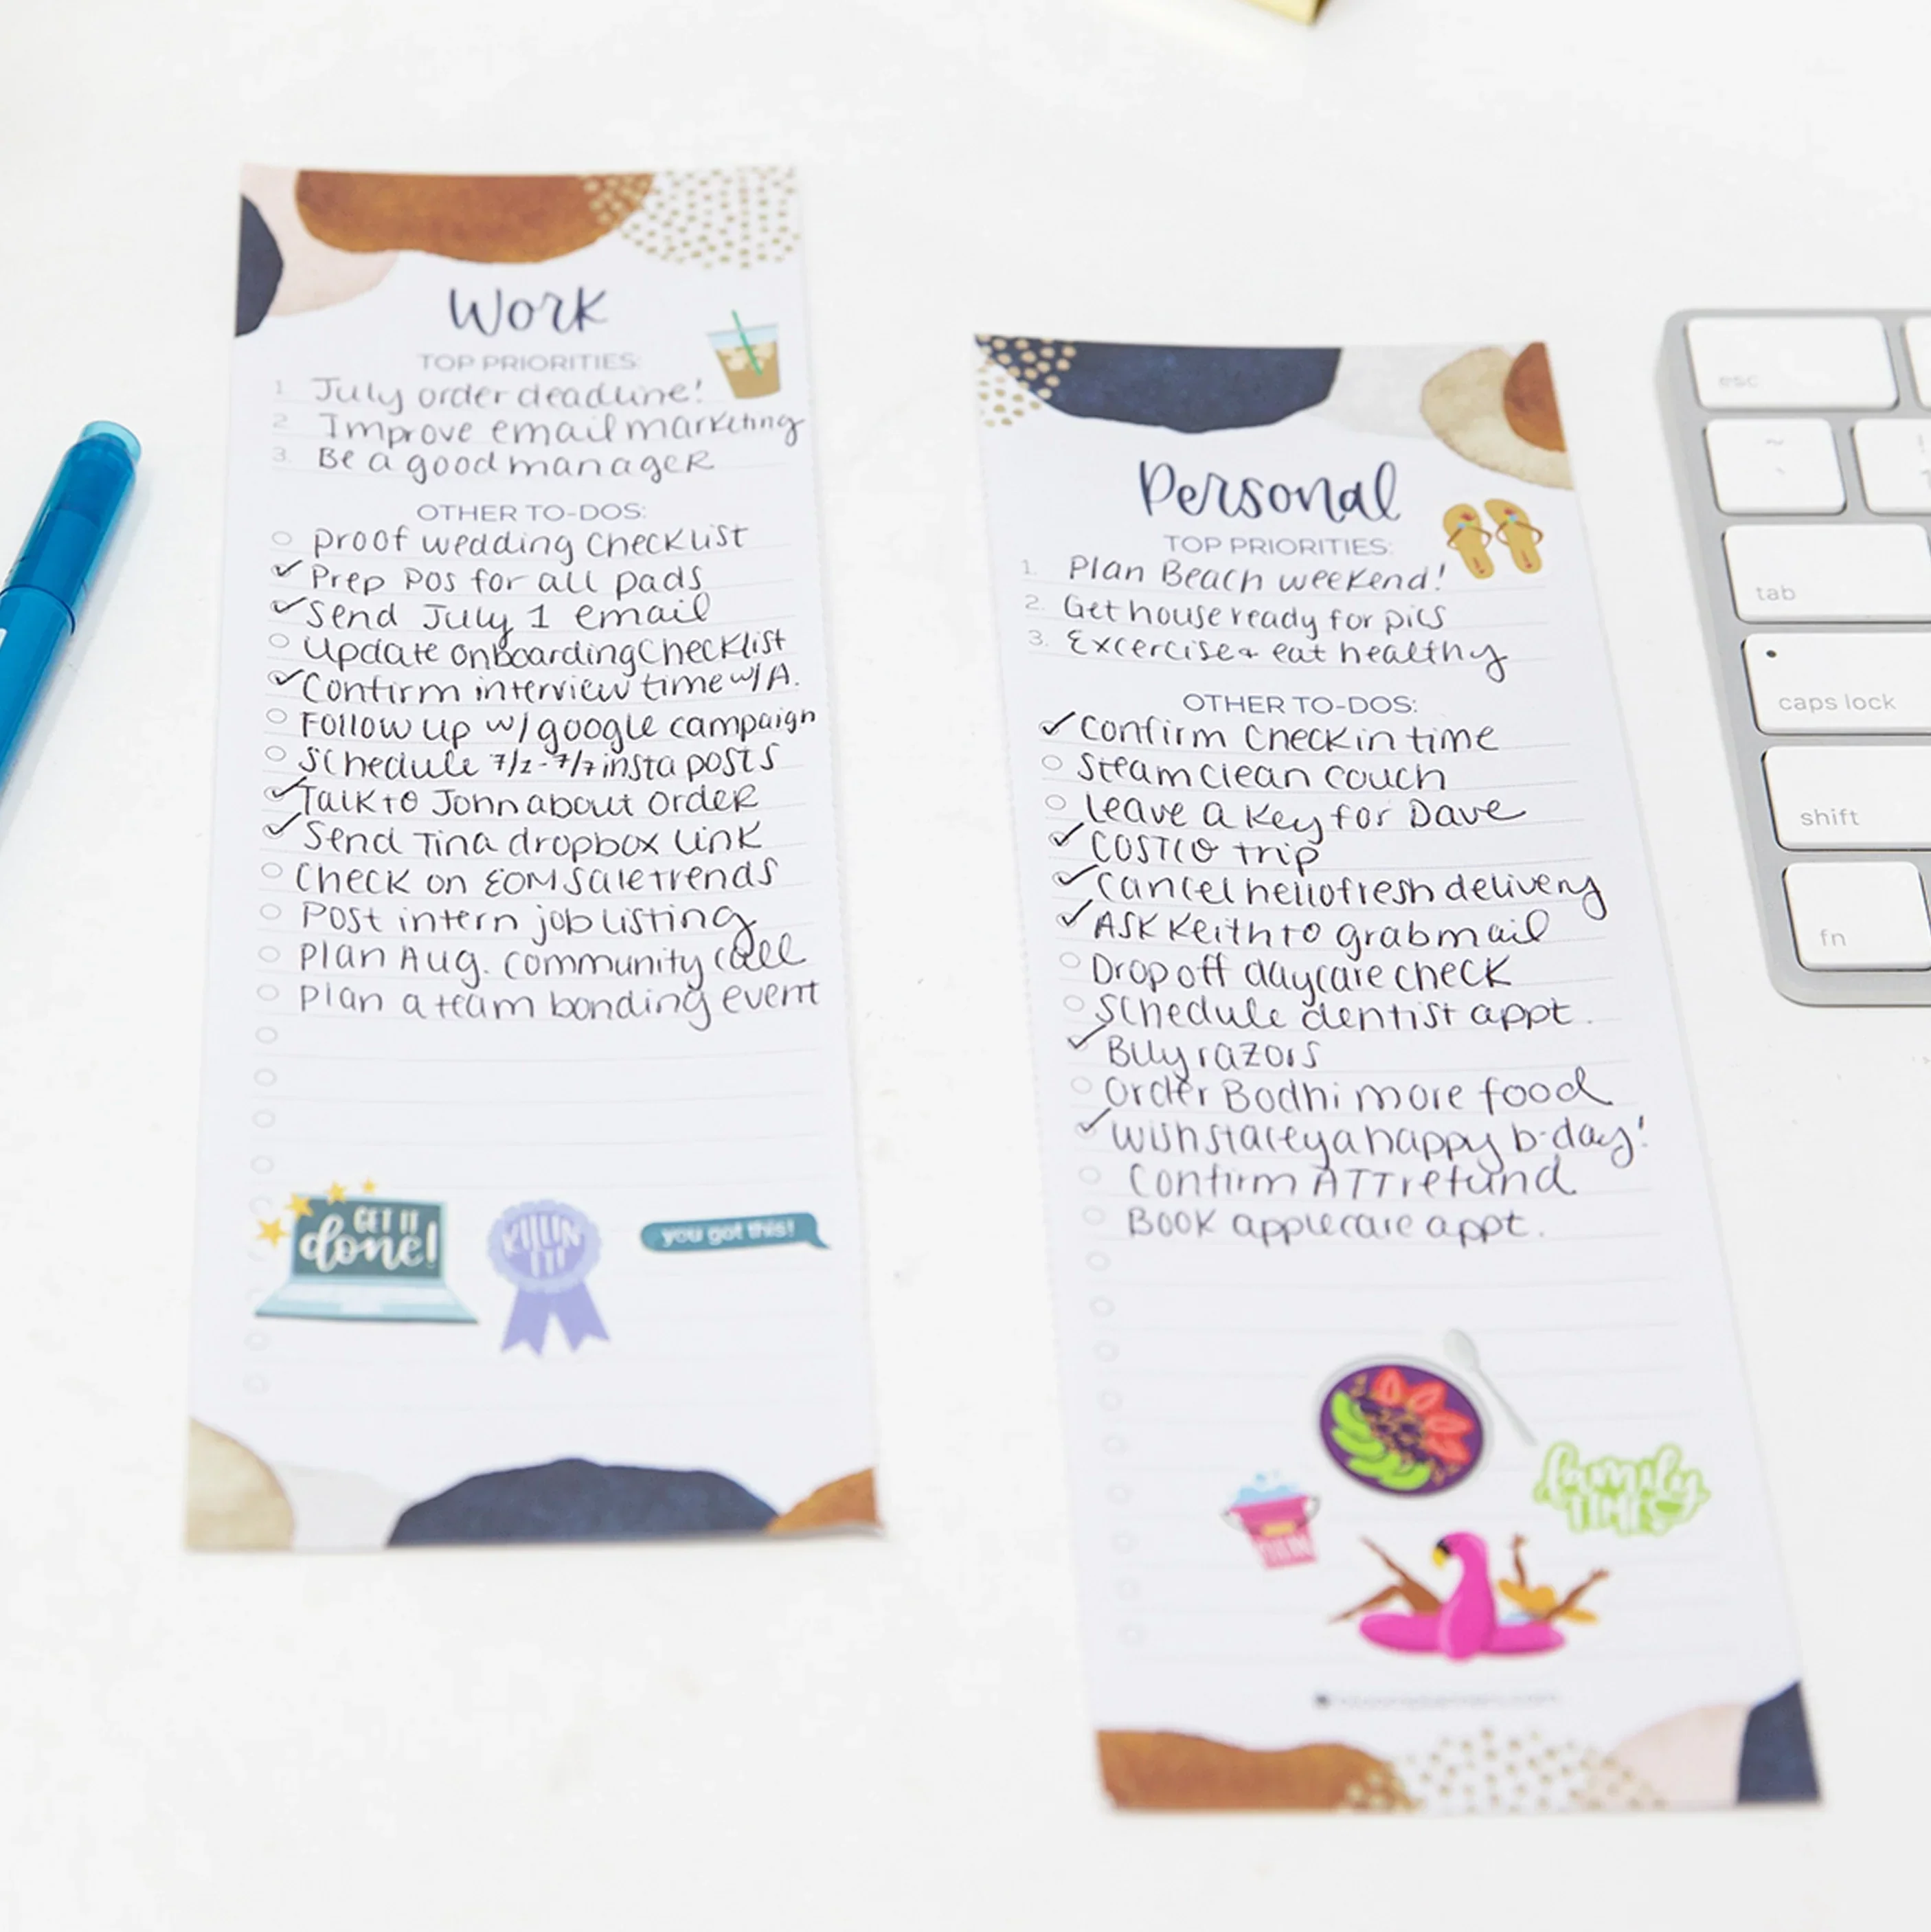 Work
TOP PRIORITIES:
1. July order deadline!
2. Improve email marketing
3. Be a good manager
OTHER TO-DOS:
Proof wedding checklist
Prep POs for all pads
Send July 1 email
Update onboarding checklist
Confirm interview time w/ A.
Follow up w/ google campaign
Schedule 7/2-7/7 insta posts
Talk to John about order
Send Tina dropbox link
Check on EOM sale trends
Post intern job listing
Plan Aug. community call
Plan a team bonding event
GET IT
done!
KILLIN
IT!
you got this!
Personal
TOP PRIORITIES:
1. Plan Beach weekend!
2. Get house ready for pics
3. Excercise + eat healthy
OTHER TO-DOS:
Confirm check in time
Steam clean couch
Leave a key for Dave
COSTCO trip
Cancel hellofresh delivery
Ask Keith to grab mail
Drop off daycare check
Schedule dentist appt.
Buy razors
Order Bodhi more food
Wish stacey a happy b-day!
Confirm ATT refund
Book applecare appt.
family
TIME
esc
tab
caps lock
shift
fn